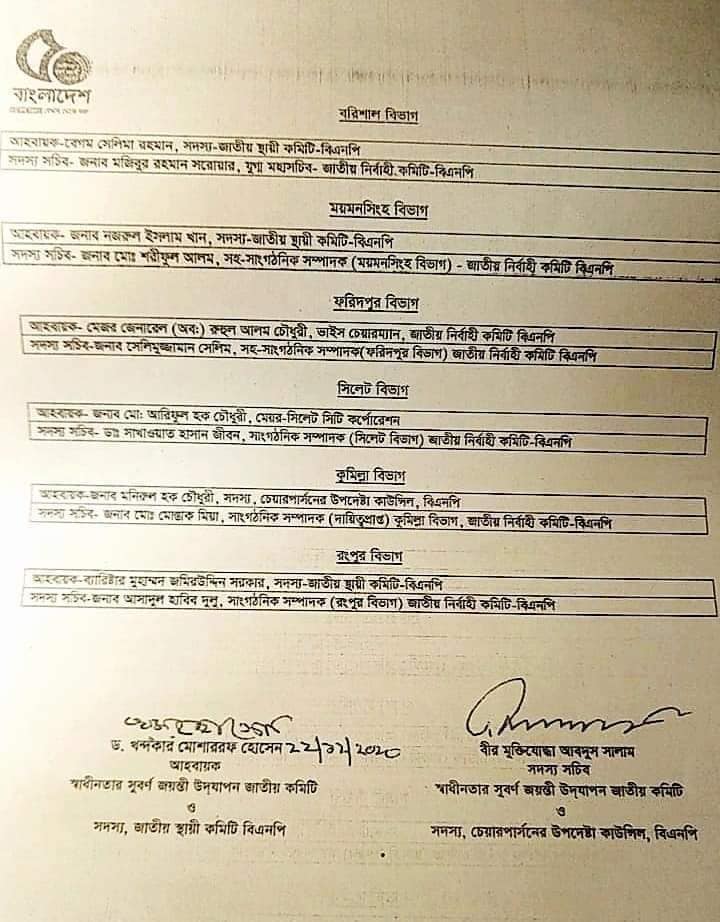 বাংলাদেশ
বরিশাল বিভাগ
আহবায়ক-বেগম সেলিমা রহমান, সদস্য-জাতীয় স্থায়ী কমিটি-বিএনপি
সদস্য সচিব- জনাব মজিবুর রহমান সরোয়ার, যুগ্ম মহাসচিব- জাতীয় নির্বাহী কমিটি-বিএনপি
ময়মনসিংহ বিভাগ
আহবায়ক- জনাব নজরুল ইসলাম খান, সদস্য-জাতীয় স্থায়ী কমিটি-বিএনপি
সদস্য সচিব- জনাব মোঃ শরীফুল আলম, সহ-সাংগঠনিক সম্পাদক (ময়মনসিংহ বিভাগ) - জাতীয় নির্বাহী কমিটি বিএনপি
ফরিদপুর বিভাগ
আহবায়ক- মেজর জেনারেল (অবঃ) রুহুল আলম চৌধুরী, ভাইস চেয়ারম্যান, জাতীয় নির্বাহী কমিটি-বিএনপি
সদস্য সচিব-জনাব সেলিমুজ্জামান সেলিম, সহ-সাংগঠনিক সম্পাদক(ফরিদপুর বিভাগ) জাতীয় নির্বাহী কমিটি বিএনপি
সিলেট বিভাগ
আহবায়ক- জনাব মো: আরিফুল হক চৌধুরী, মেয়র-সিলেট সিটি কর্পোরেশন
সদস্য সচিব- ডাঃ সাখাওয়াত হাসান জীবন, সাংগঠনিক সম্পাদক (সিলেট বিভাগ) জাতীয় নির্বাহী কমিটি-বিএনপি
কুমিল্লা বিভাগ
আহবায়ক-জনাব মনিরুল হক চৌধুরী, সদস্য, চেয়ারপার্সনের উপদেষ্টা কাউন্সিল, বিএনপি
সদস্য সচিব- জনাব মোঃ মোস্তাক মিয়া, সাংগঠনিক সম্পাদক (দায়িত্বপ্রাপ্ত) কুমিল্লা বিভাগ, জাতীয় নির্বাহী কমিটি-বিএনপি
রংপুর বিভাগ
আহবায়ক-ব্যারিষ্টার মুহাম্মদ জমিরউদ্দিন সরকার, সদস্য-জাতীয় স্থায়ী কমিটি-বিএনপি
সদস্য সচিব-জনাব আসাদুল হাবিব দুলু, সাংগঠনিক সম্পাদক (রংপুর বিভাগ) জাতীয় নির্বাহী কমিটি-বিএনপি
ড. খন্দকার মোশাররফ হোসেন ২২/১২/২০২০
আহবায়ক
স্বাধীনতার সুবর্ণ জয়ন্তী উদ্‌যাপন জাতীয় কমিটি
ও
সদস্য, জাতীয় স্থায়ী কমিটি বিএনপি
বীর মুক্তিযোদ্ধা আবদুস সালাম
সদস্য সচিব
স্বাধীনতার সুবর্ণ জয়ন্তী উদ্‌যাপন জাতীয় কমিটি
ও
সদস্য, চেয়ারপার্সনের উপদেষ্টা কাউন্সিল, বিএনপি